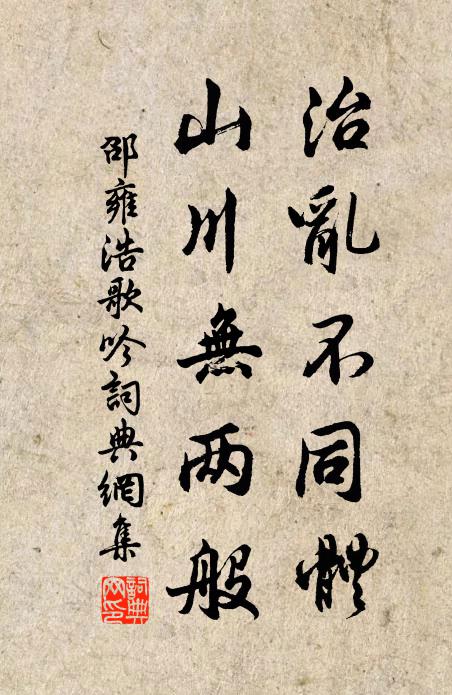 治亂不同體
山川無两般
邵雍浩歌吟詞典網集
詞典网印